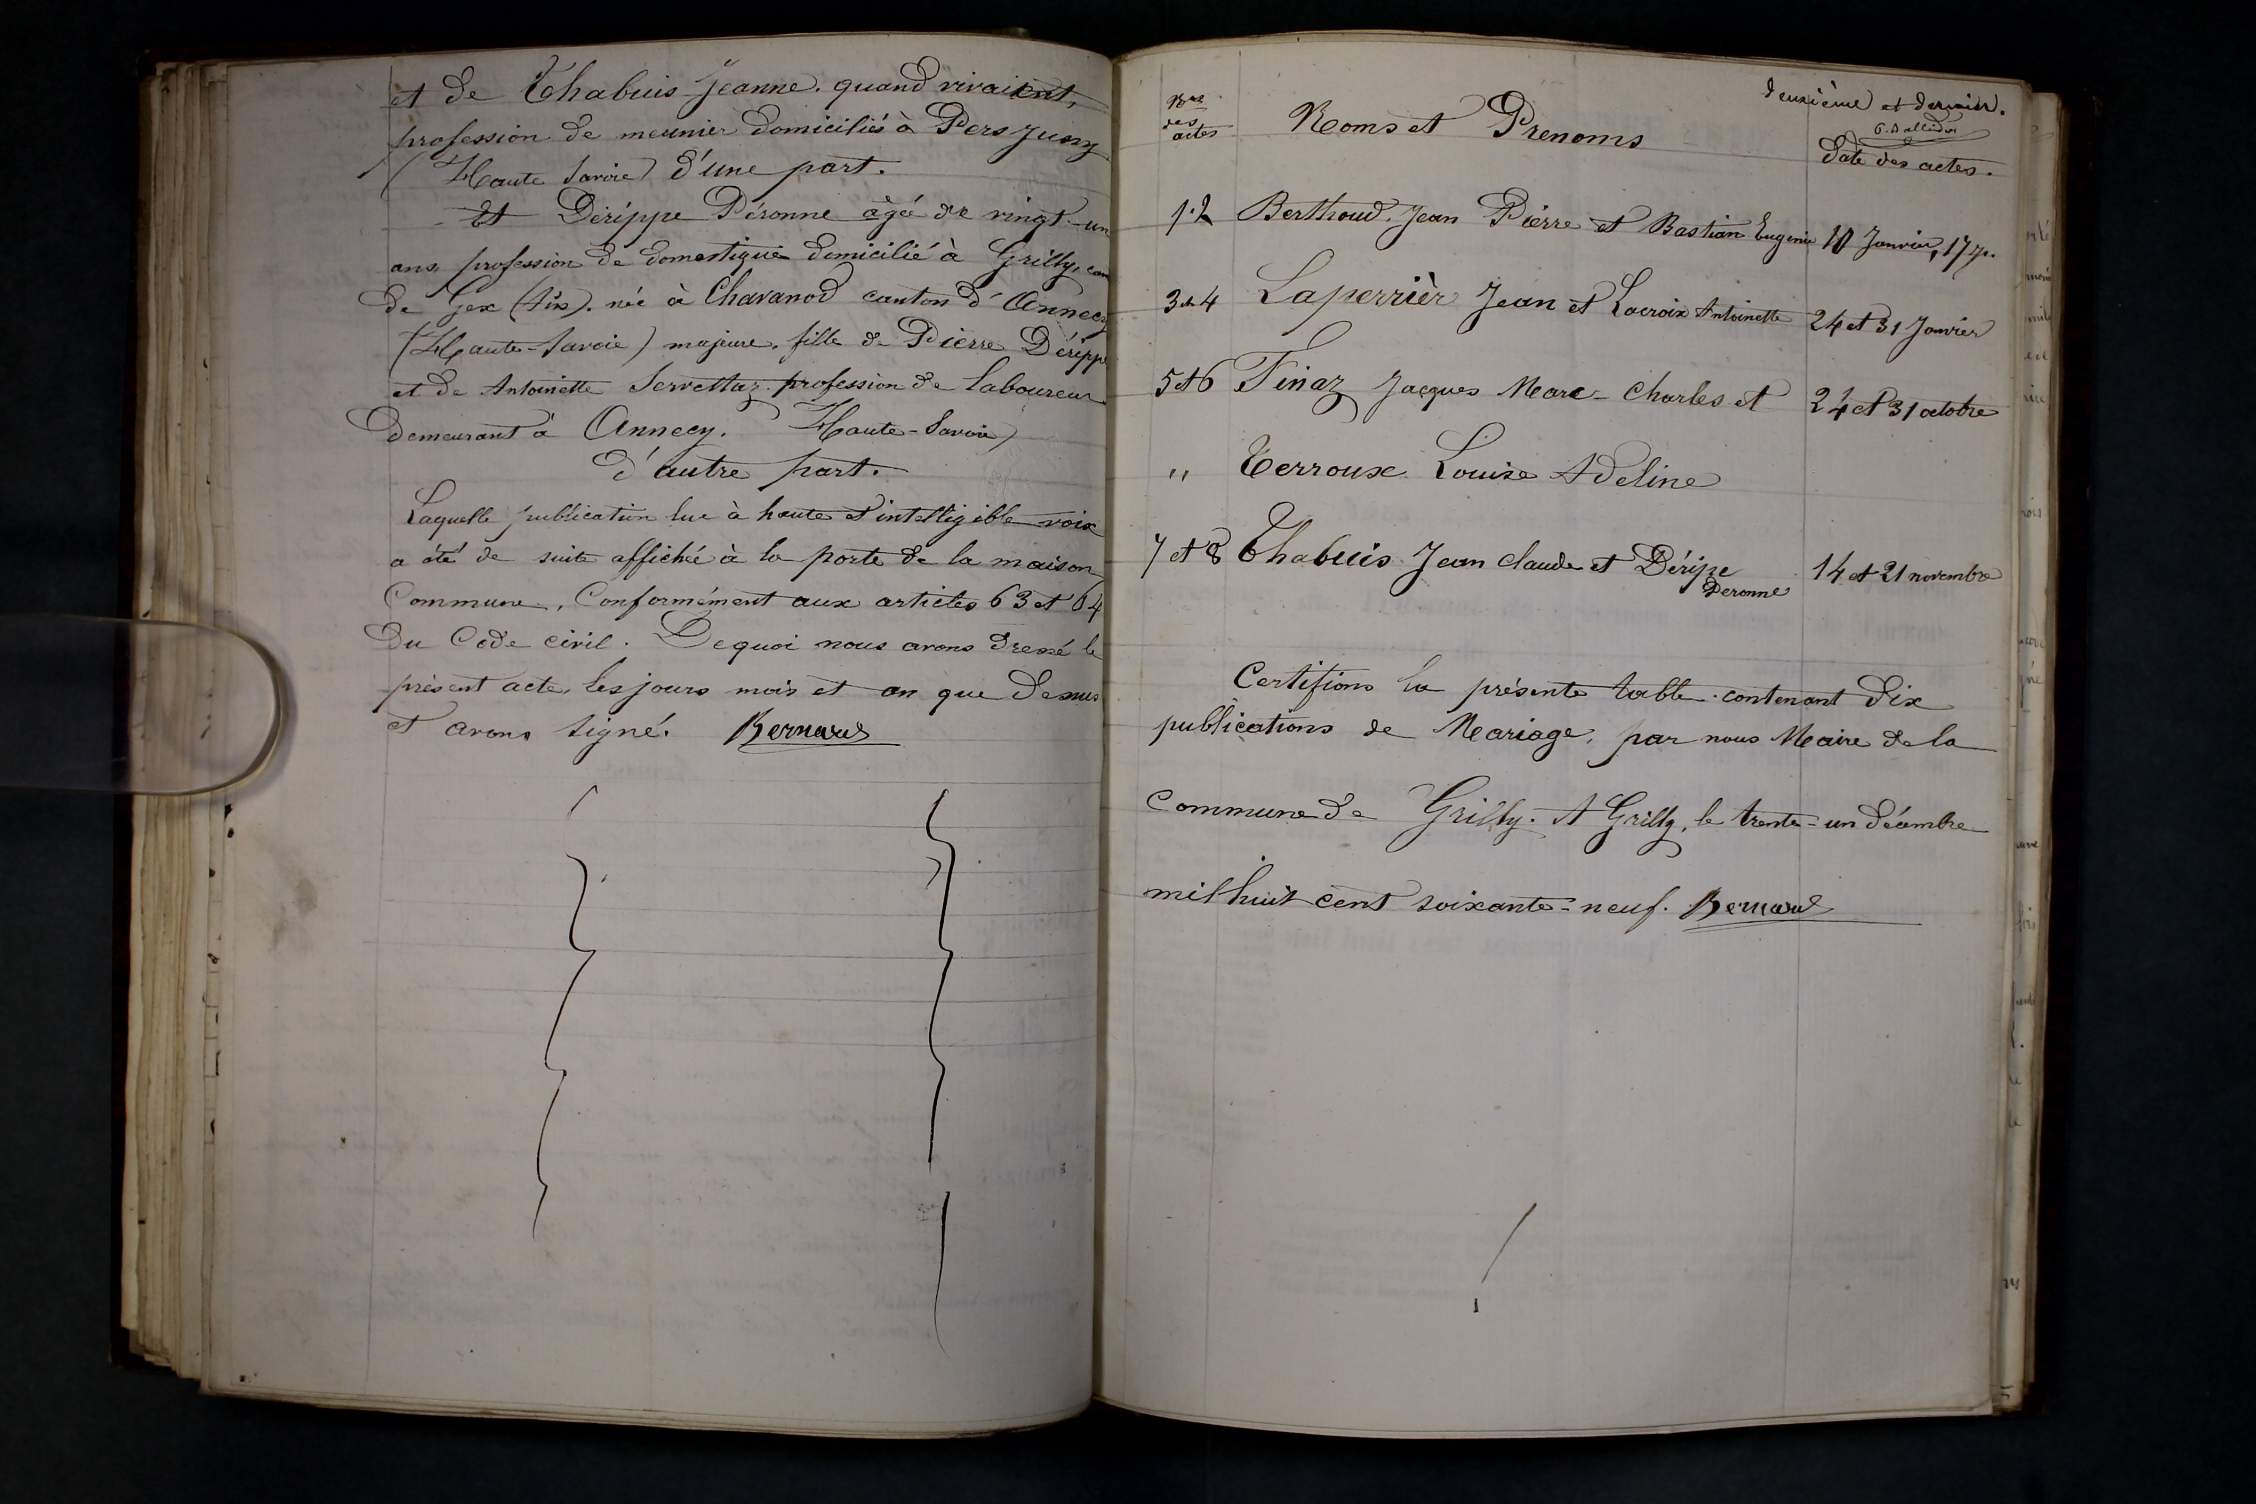 et de Thabuis Jeanne. quand vivaient,
profession de meunier domiciliés à Pers Jussy
(Haute Savoie) d'une part.
Et Dérippe Péronne âgé de vingt-un
ans, profession de domestique domicilié à Grilly, can
de Gex (Ain). née à Chavanod canton d'Annecy
(Haute-Savoie) majeure. fille de Pierre Dérippe
et de Antoinette Servettaz profession de laboureur
demeurant à Annecy. Haute-Savoie)
d'autre part.
Laquelle publication lue à haute et intelligible voix
a été de suite affichée à la porte de la maison
Commune, Conformément aux articles 63 et 64
du Code civil. De quoi nous avons dressé le
présent acte, les jours mois et an que dessus
et avons signé. Bernard
deuxième et dernier.
Nos des actes
Noms et Prenoms
Date des actes.
1.2 Berthoud. Jean Pierre et Bastian Eugenie 10 Janvier, 17
3 et 4 Laperrièr Jean et Lacroix Antoinette 24 et 31 Janvier
5 et 6 Finaz Jacques Marc-Charles et 24 et 31 octobre
" Terroux Louise Adeline
7 et 8 Thabuis Jean Claude et Déripe 14 et 21 novembre
Peronne
Certifions la présente table contenant dix
publications de Mariage, par nous Maire de la
Commune de Grilly. A Grilly, le trente-un décembre
mil huit cent soixante-neuf. Bernard